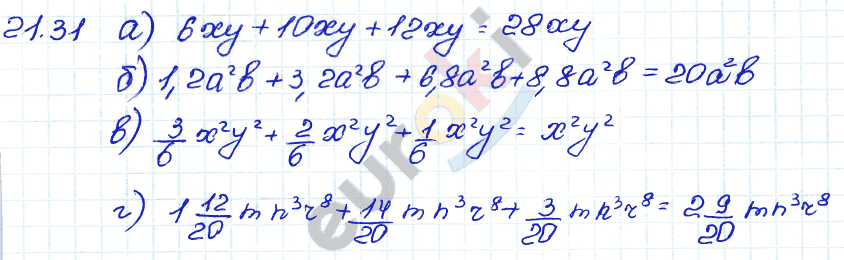 21.31 а) 6xy + 10xy + 12xy = 28xy
б) 1,2a²b + 3,2a²b + 6,8a²b + 8,8a²b = 20a²b
в) 3/6 x²y² + 2/6 x²y² + 1/6 x²y² = x²y²
г) 1 12/20 mn³r⁸ + 14/20 mn³r⁸ + 3/20 mn³r⁸ = 2 9/20 mn³r⁸
euroki